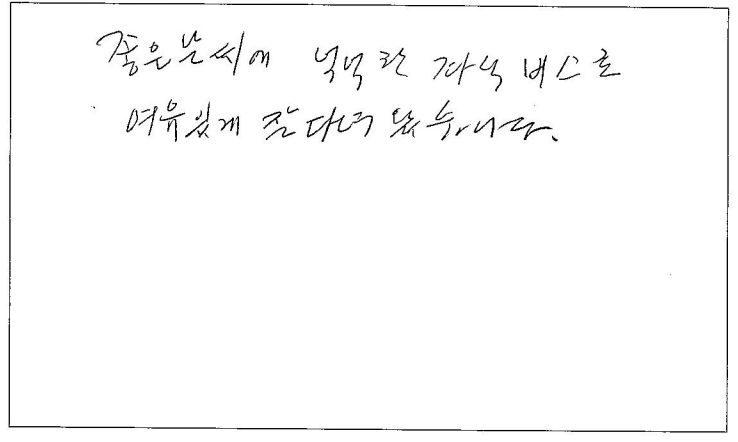 좋은날씨에 넉넉한 좌석 버스로
여유있게 잘 다녀 왔습니다.